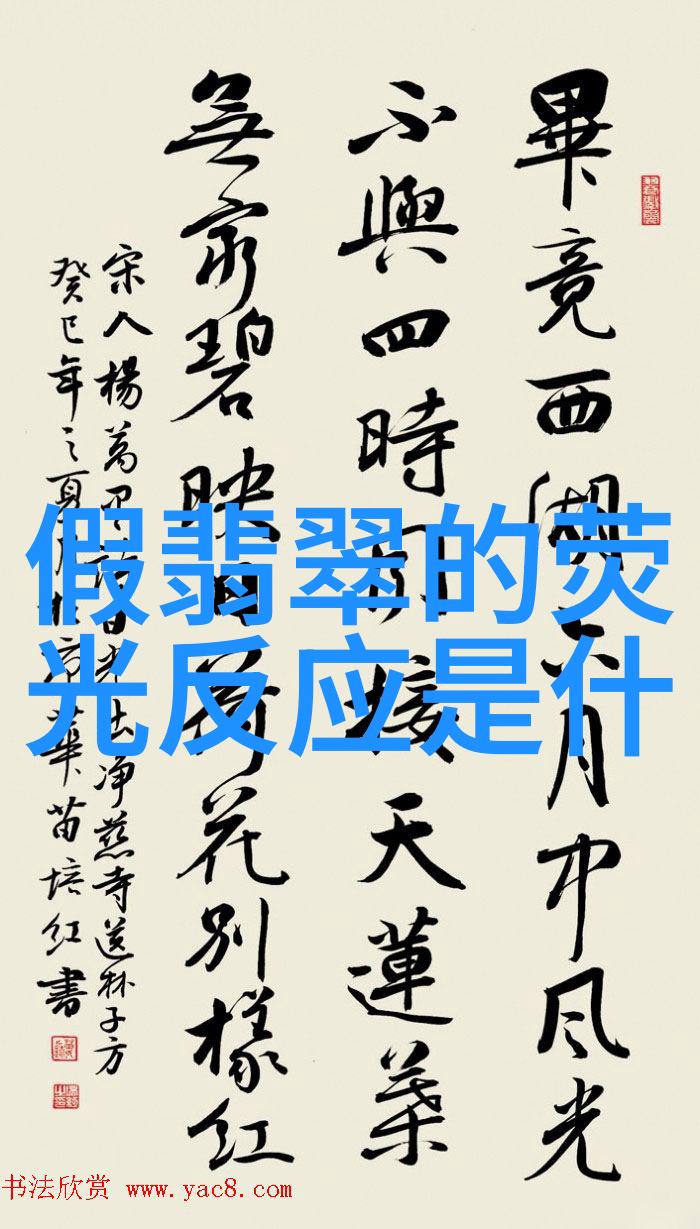 假翡翠的荧
光反应是什
畢竟西湖六月中风光
不與四時同接天蓮葉
無窮碧映日荷花别樣红
宋人楊萬里詩曉出净慈寺送林子方
癸巳年之夏月於京華苗培红書
书法欣赏 www.yac8.com